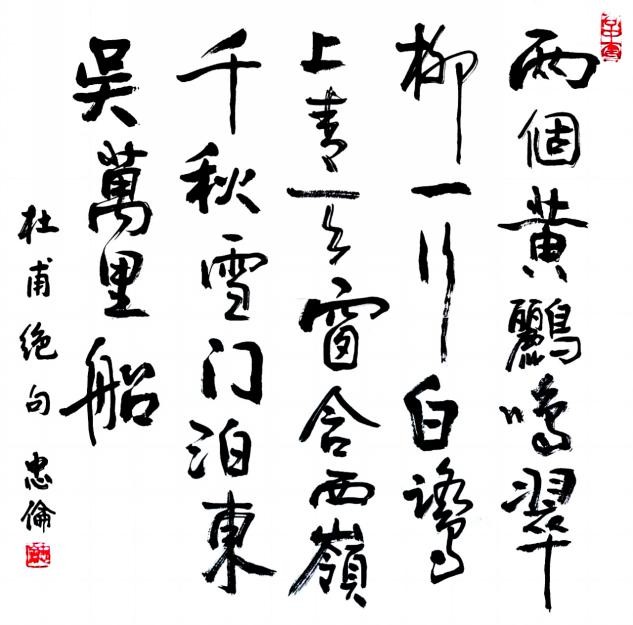 兩個黄鸝鳴翠
柳一行白鷺
上青天窗含西嶺
千秋雪门泊東
吳萬里船
杜甫绝句 忠倫